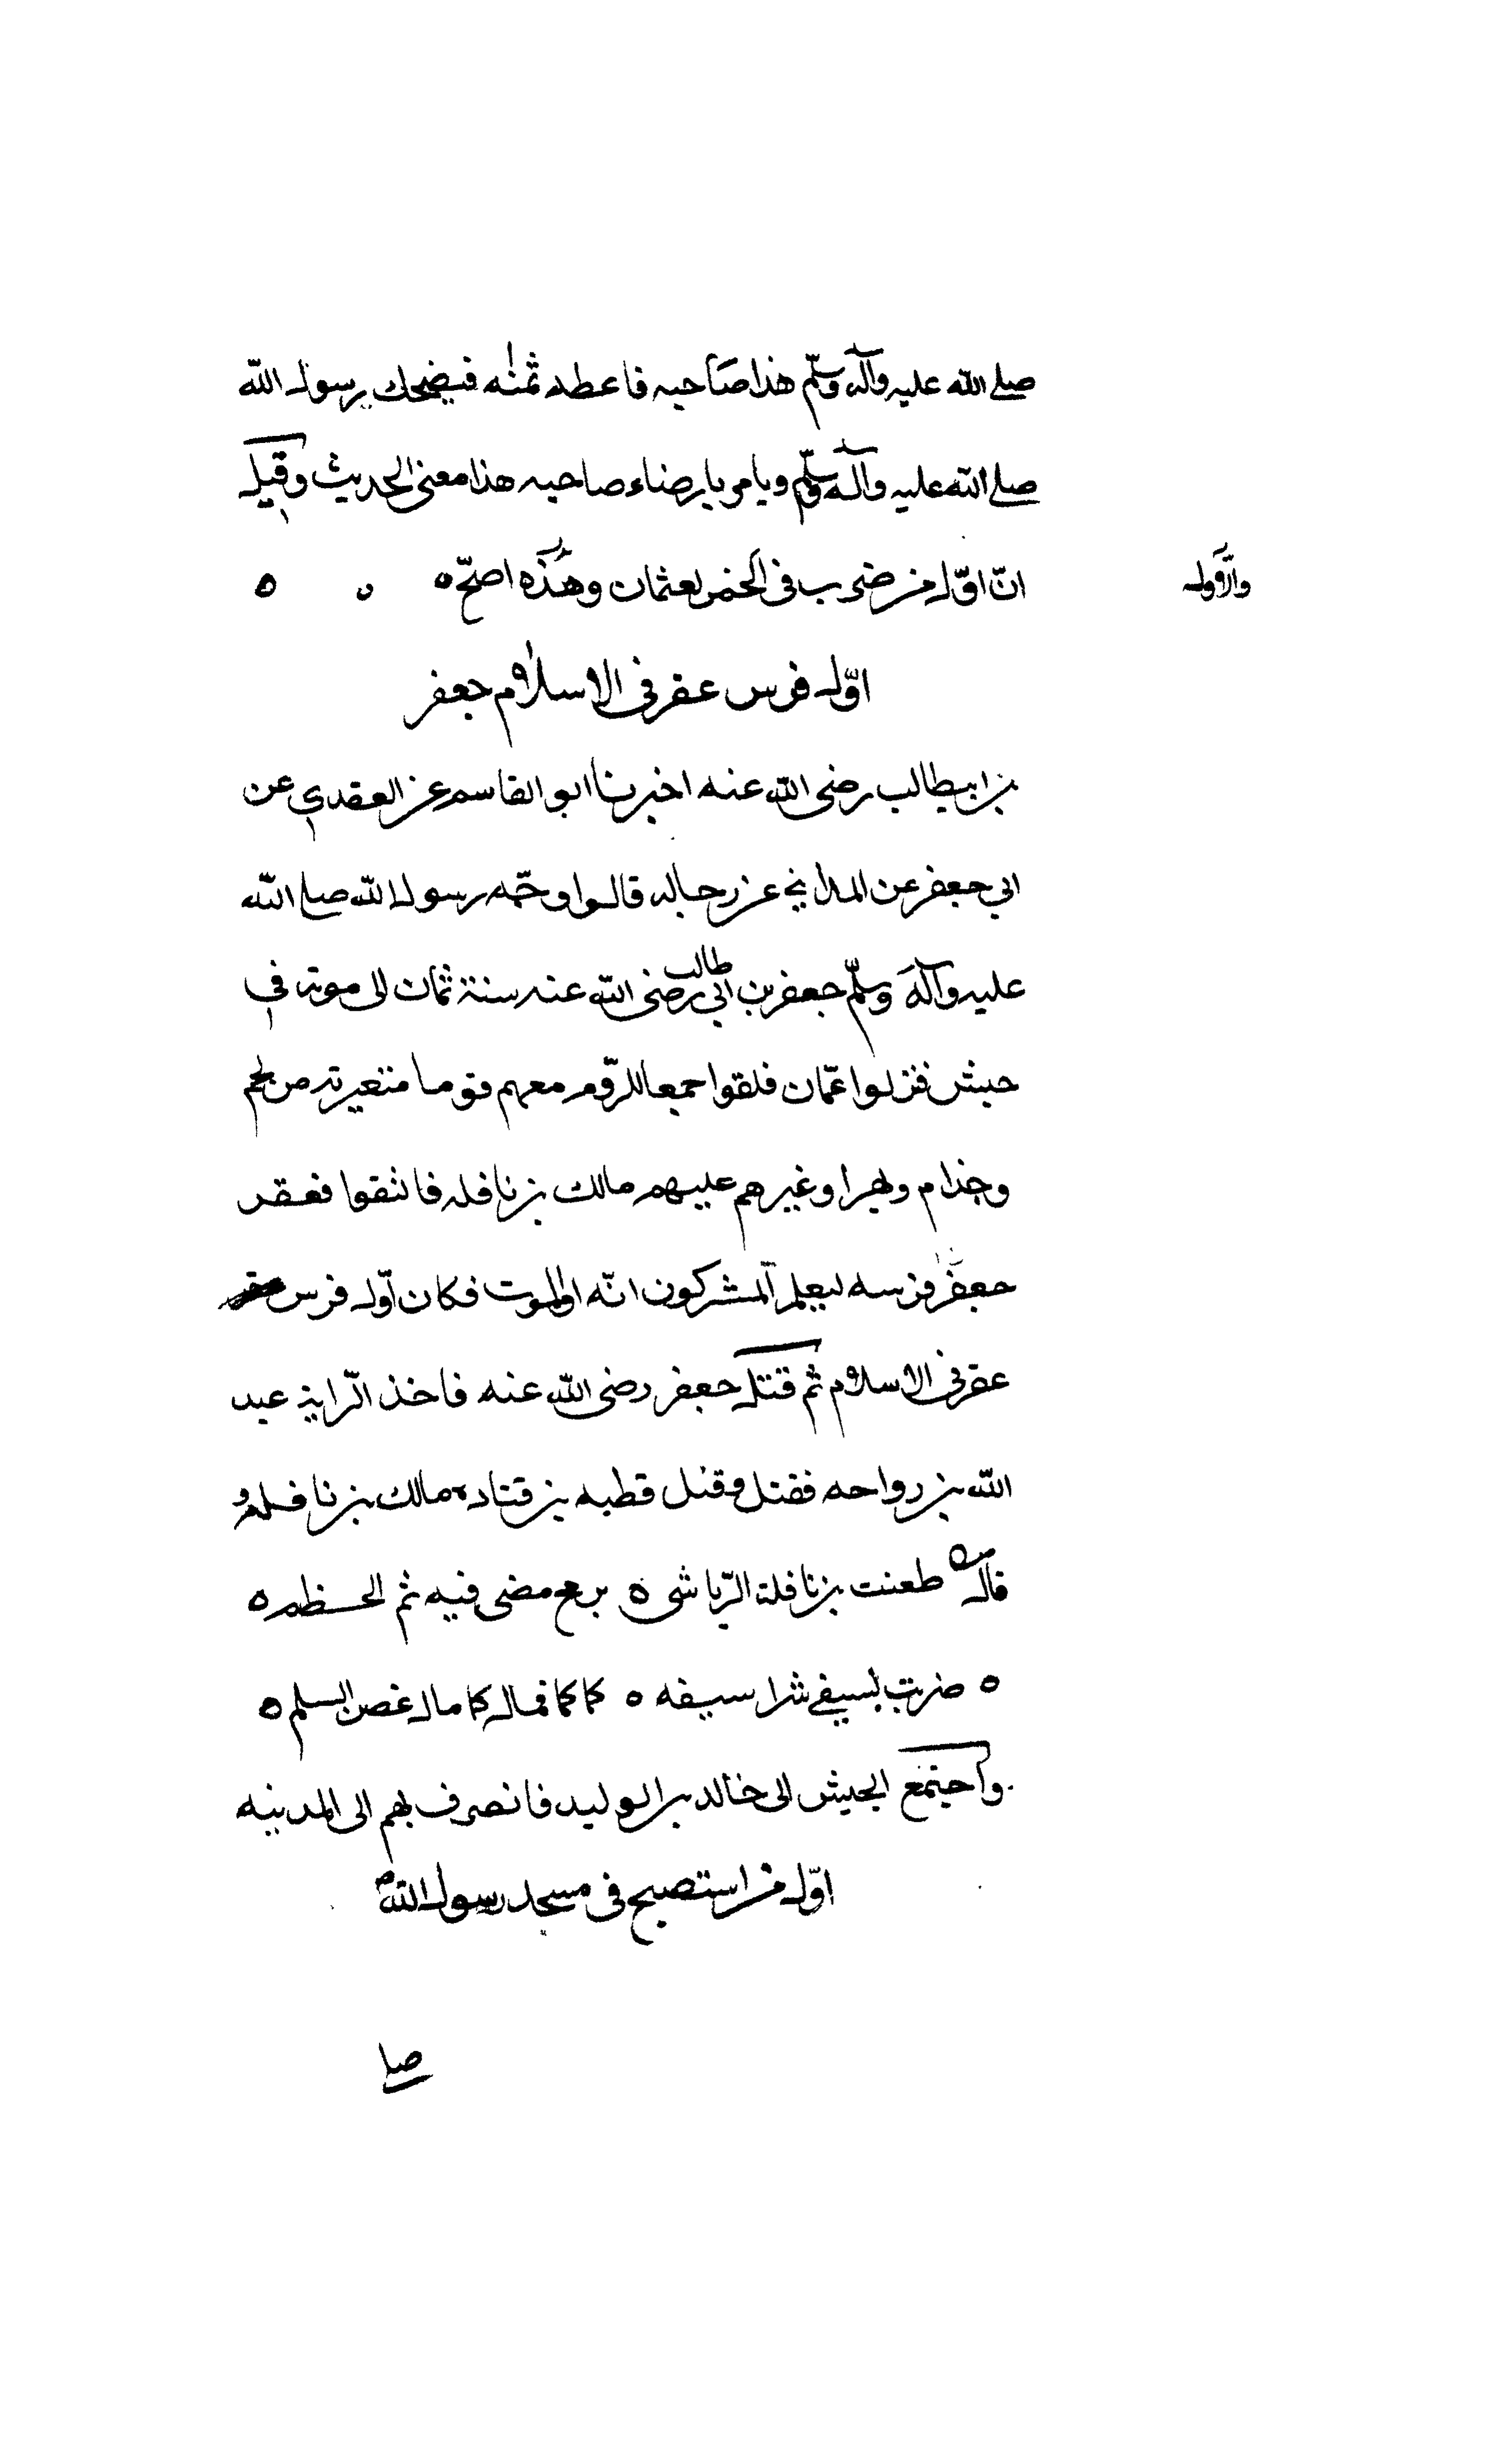 صلى الله عليه وآله وسلم هذا صاحبه فاعطه ثمنه فيضحك رسول الله
صلى الله عليه وآله وسلم ويامر بارضاء صاحبه هذا معنى الحديث وقيل
انّ اوّل من ضرب في الخمر لعثمان وهذه اصحّ ه
والاول
اوّل فرس عقر في الاسلام جعفر
بن ابيطالب رضى الله عنه اخبرنا ابو القاسم عن العقدي عن
ابي جعفر عن المدايني عن رجاله قالوا وجّه رسول الله صلى الله
عليه وآله وسلّم جعفر بن ابي طالب رضى الله عنه سنة ثمان الى موته في
جيش فنزلوا عمّان فلقوا جمعا للرّوم معهم قوما متعيرته من لخم
وجذام وبهرا وغيرهم عليهم مالك بن نافله فانتقوا فعقر
جعفر فرسه ليعلم المشركون انّه الموت فكان اوّل فرس
عقر في الاسلام ثم قتل جعفر رضى الله عنه فاخذ الرّاية عبد
الله بن رواحه فقتل وقتل قطبه بن قتاده مالك بن نافله و
قال طعنت بن نافلة الرّياشى ه برمح مضى فيه ثم الحظم ه
ه ضربت بسيفي شراسيفه ه كما كما فمال كما مال غصن السلم ه
واجتمع الجيش الى خالد بن الوليد فانصرف بهم الى المدينه
اوّل من استصبح في مسجد رسول الله
صلى